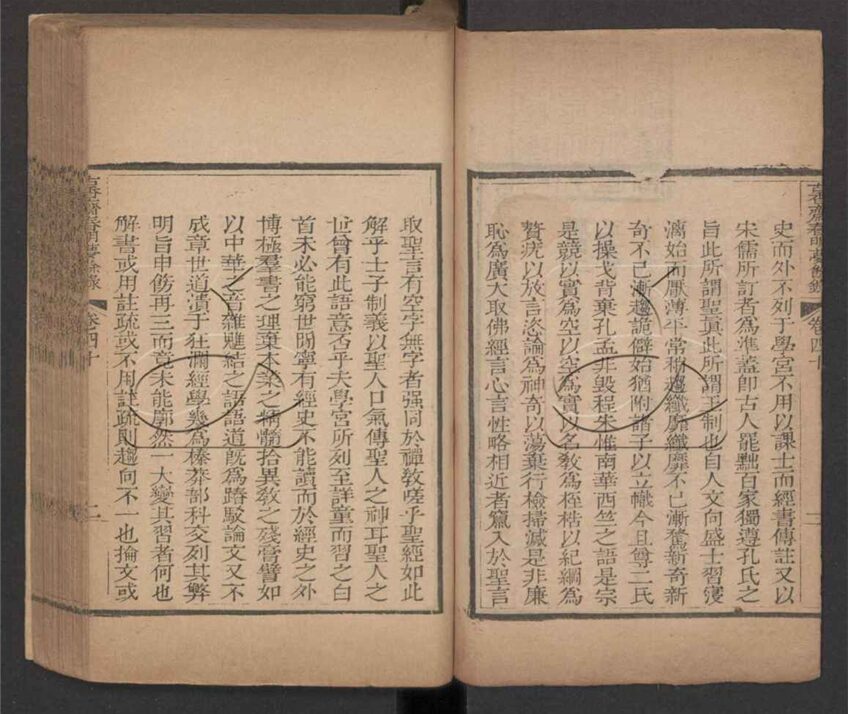 史而外不列于學宮不用以課士而經書傳註又以
宋儒所訂者為準蓋即古人罷黜百家獨遵孔氏之
旨此所謂聖真此所謂王制也自人文向盛士習寖
漓始而厭薄平常稍趨纖靡纖靡不已漸騖新奇新
奇不已漸趨詭僻始猶附諸子以立幟今且尊二氏
以操戈背棄孔孟非毀程朱惟南華西竺之語是宗
是競以實為空以空為實以名教為桎梏以紀綱為
贅疣以放言恣論為神奇以蕩棄行檢掃滅是非廉
恥為廣大取佛經言心言性略相近者竄入於聖言
卷四十
二
取聖言有空字無字者强同於禪敎嗟乎聖經如此
解乎士子制義以聖人口氣傳聖人之神耳聖人之
世曾有此語意否乎夫學宮所列至詳童而習之白
首未必能窮世間寧有經史不能讀而於經史之外
博極羣書之理棄本業之精髓拾異敎之殘膏譬如
以中華之音雜魋結之語語道旣為踳駁論文又不
成章世道潰于狂瀾經學幾為榛莽部科交列其弊
明旨申飭再三而竟未能廓然一大變其習者何也
解書或用註疏或不用註疏則趨向不一也掄文或
古香齋春明夢餘錄
卷四十
二